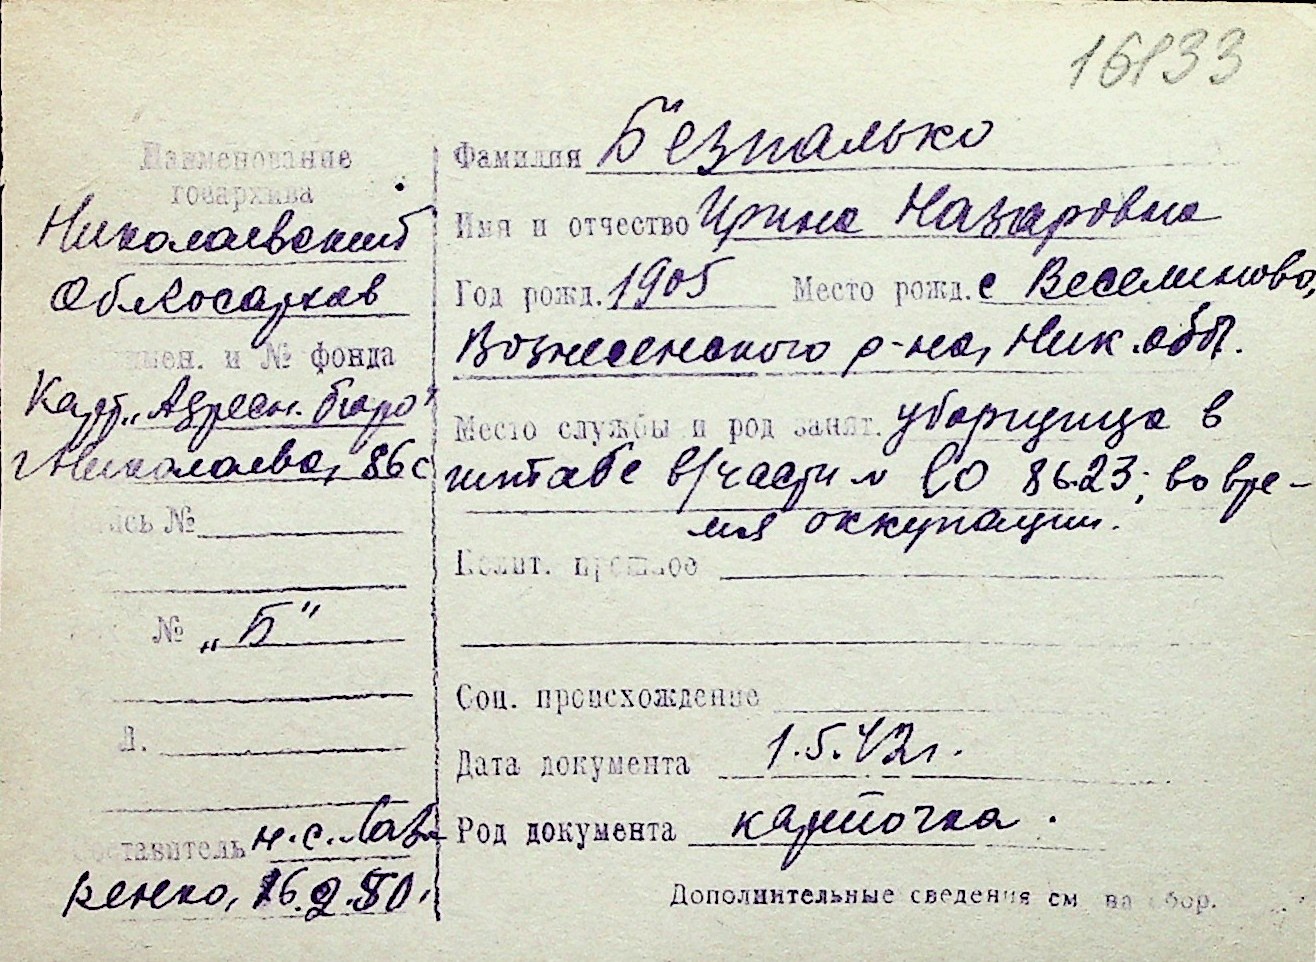 16133
Наименование
госархива
Николаевский
Облгосархив
имен. и № фонда
Карт. „Адресн. бюро"
г. Николаева, 86с
ись №
№ „Б"
Л.
Составитель н.с. Лав-
ренко, 16.9.50.
Фамилия Безпалько
Имя и отчество Ирина Назаровна
Год рожд. 1905 Место рожд. с Веселиново,
Вознесенского р-на, Ник. обл.
Место службы и род занят. уборщица в
штабе в/части 8623; во вре-
мя оккупации.
Полит. прошлое
Соц. происхождение
Дата документа 1.5.42г.
Род документа карточка.
Дополнительные сведения см на обор.